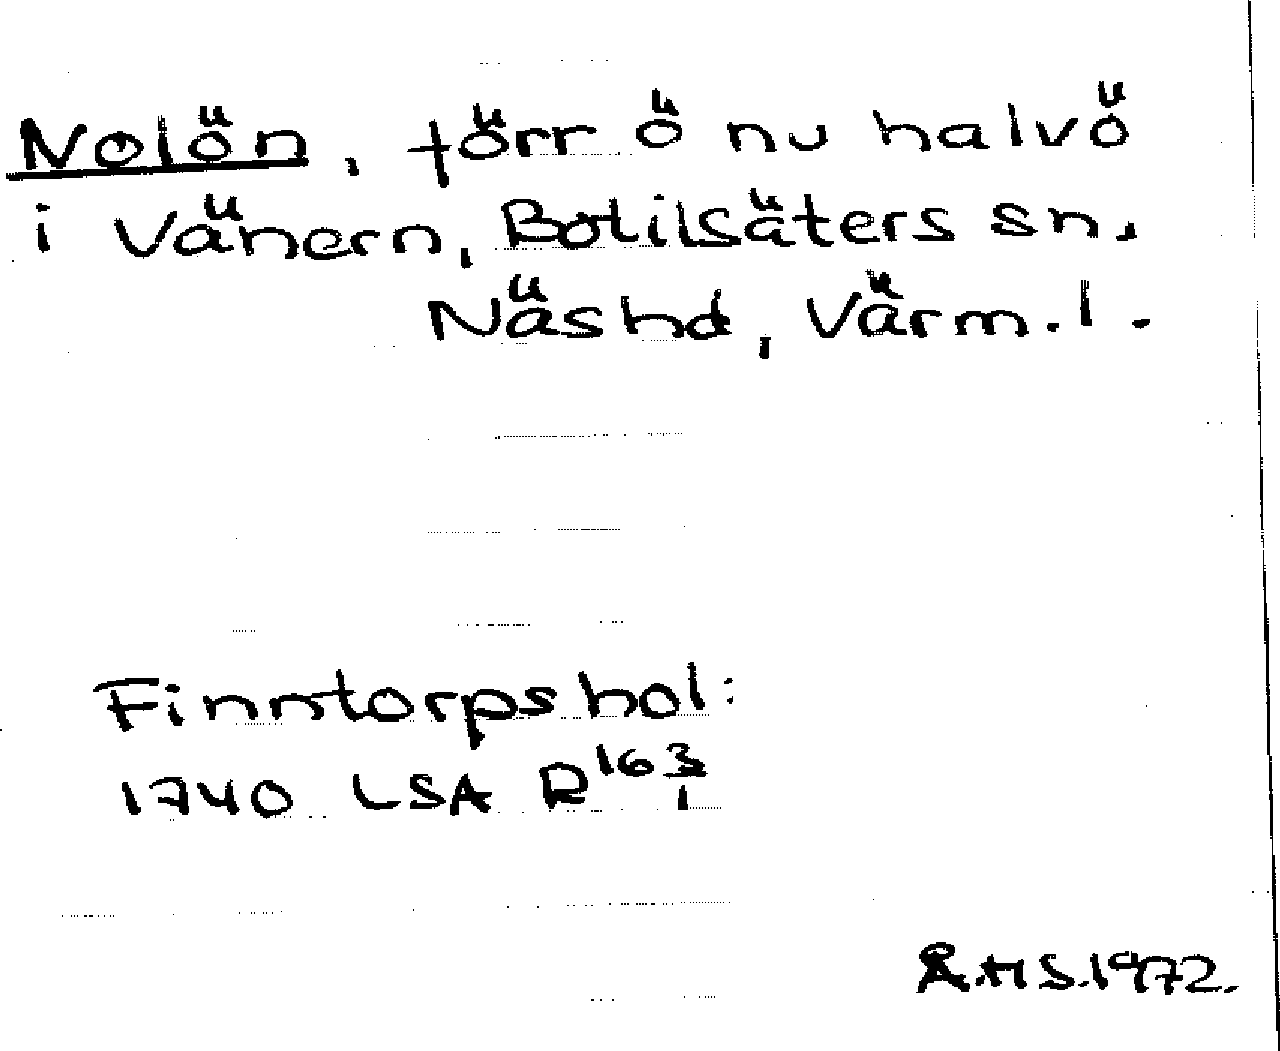 Nolön, förr ö nu halvö
i Vänern, Botilsäters sn.
Näs hd, Värm. l.
Finntorpshol:
1740 LSA R 163/1
Å.H S. 1972.